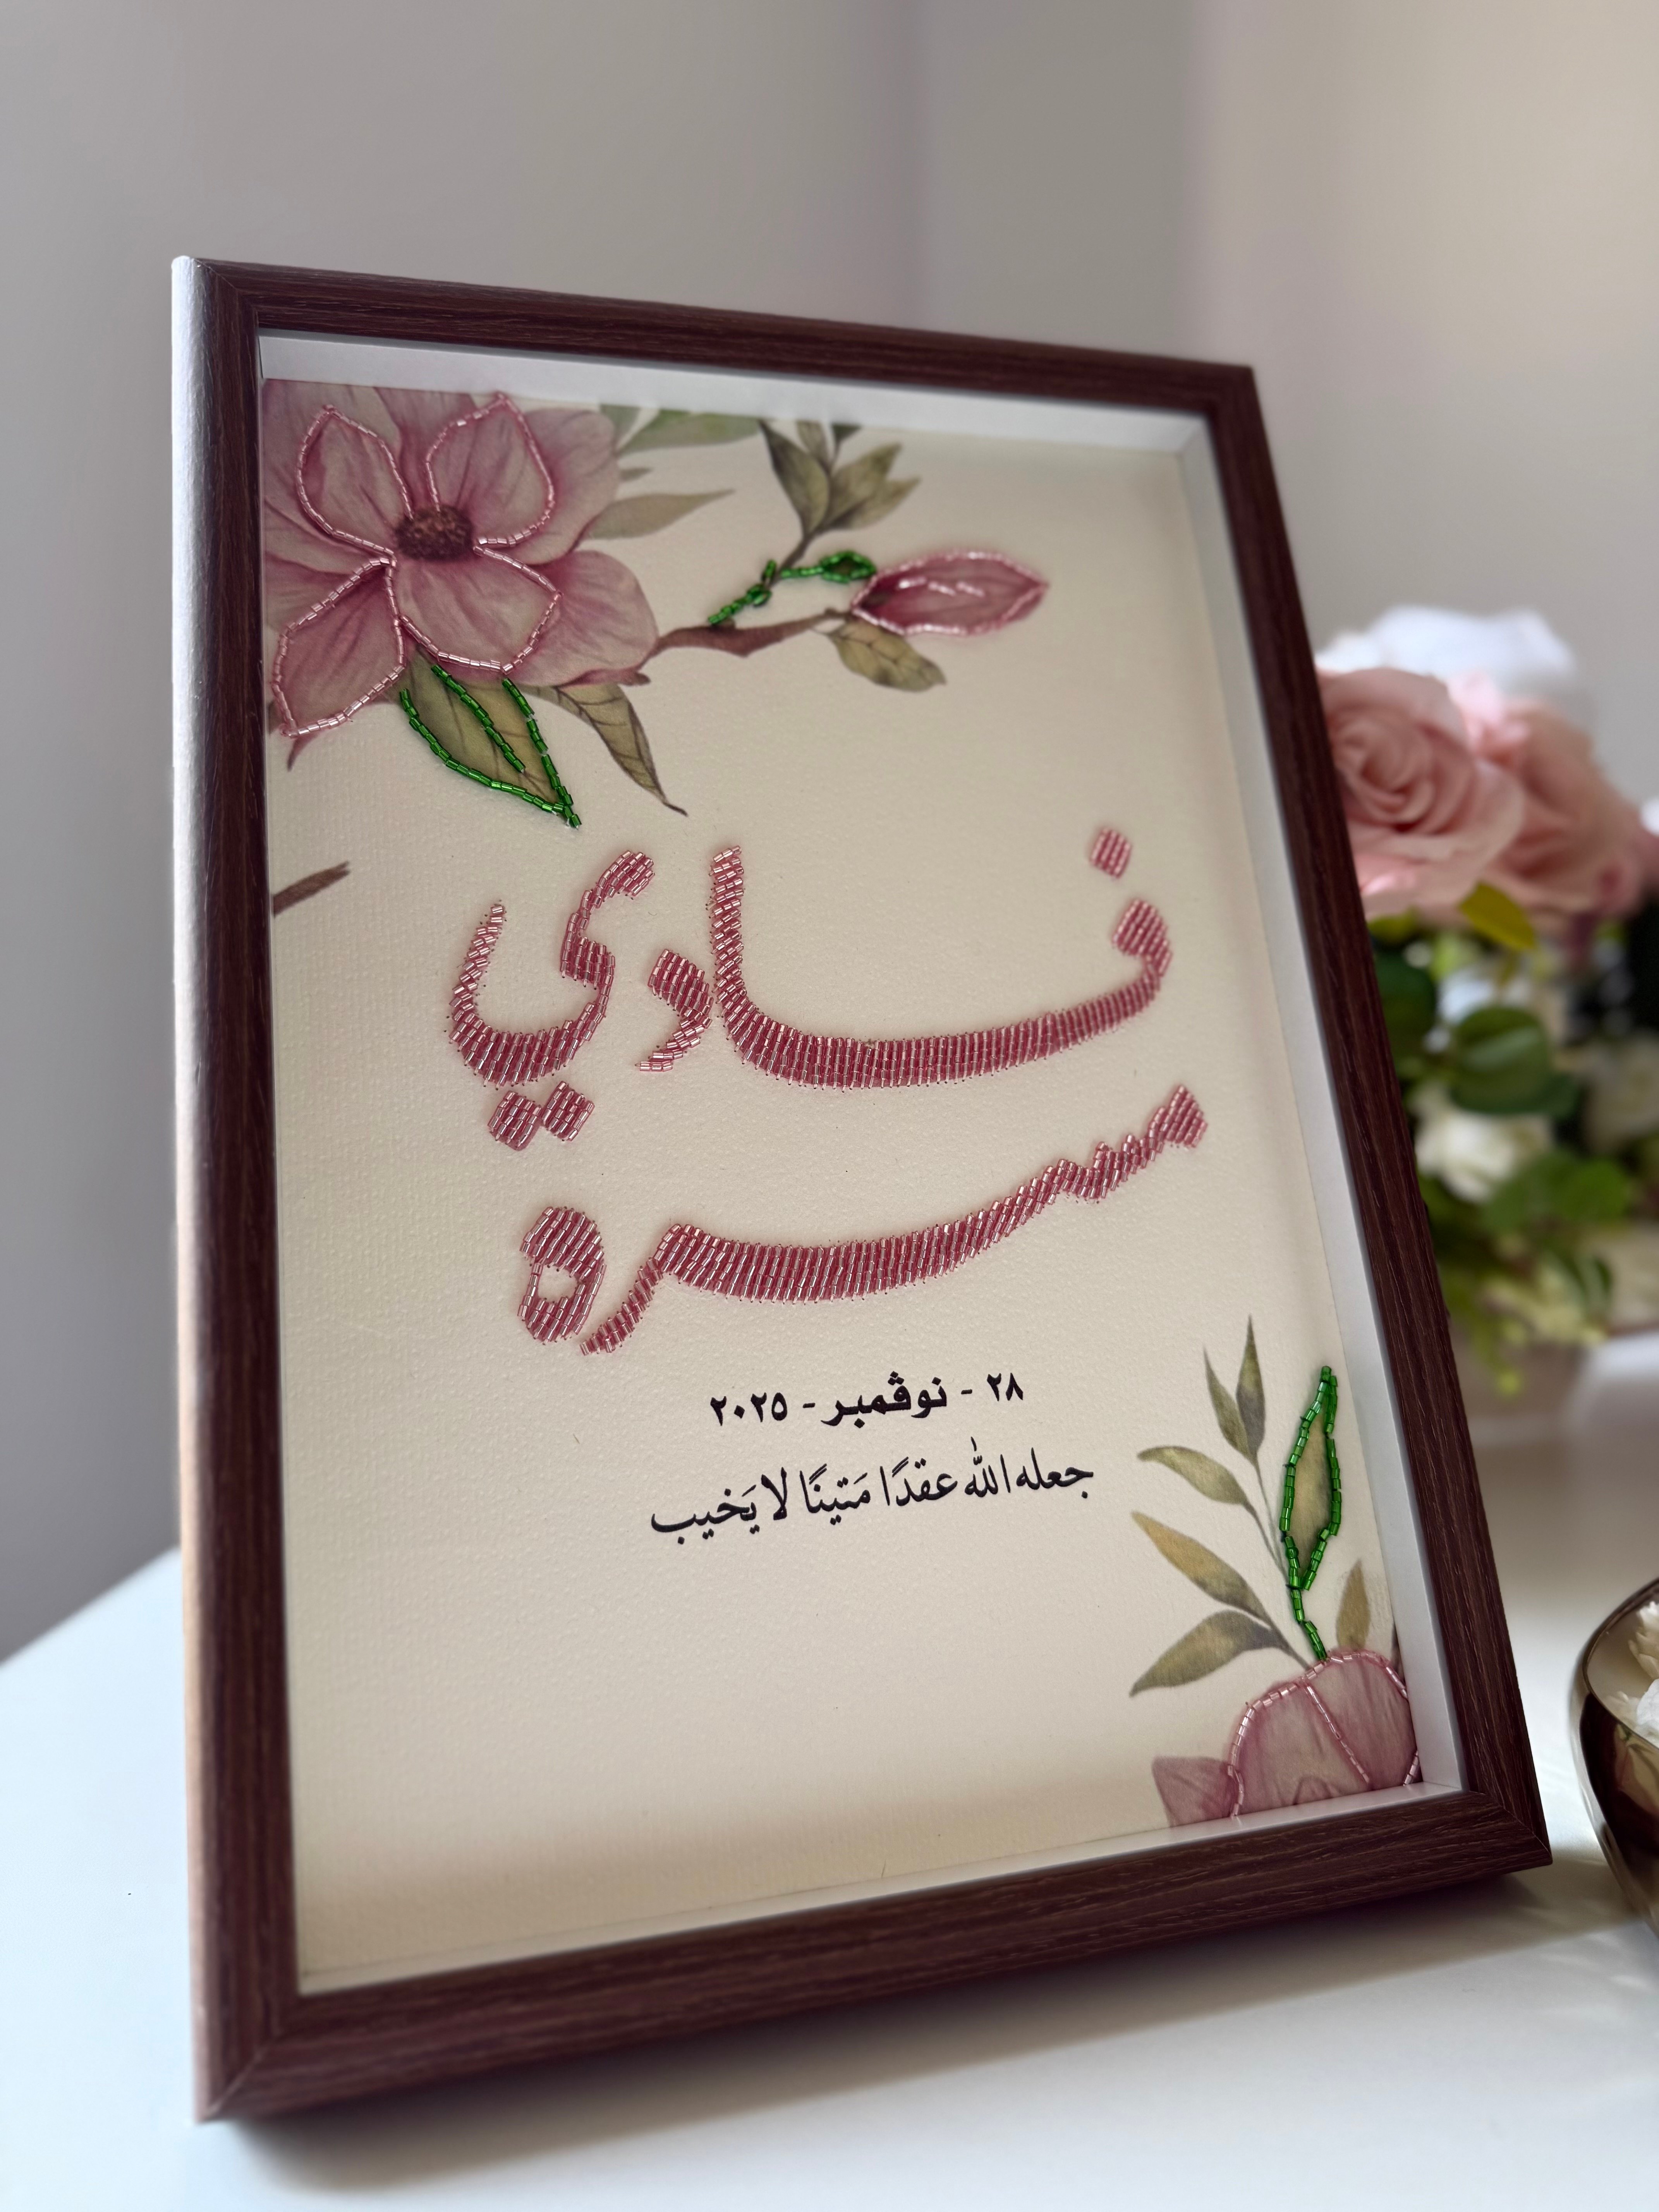 فادي
سره
٢٨ - نوڤمبر - ٢٠٢٥
جعله الله عقدًا مَتينًا لا يَخيب